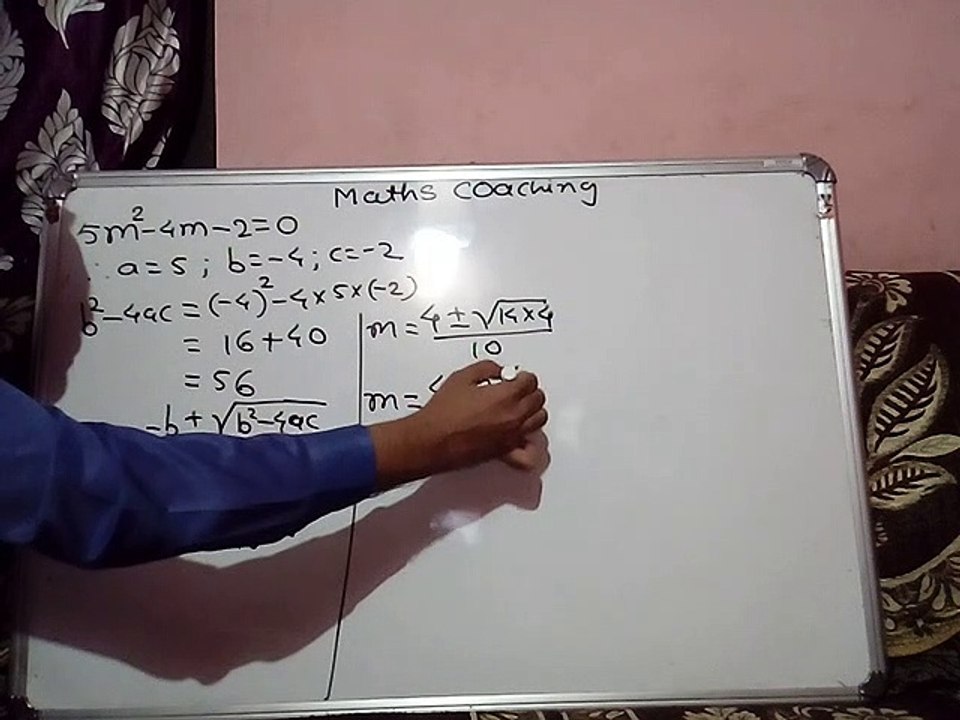 Maths coaching
5m²-4m-2=0
∴ a=5 ; b=-4 ; c=-2
b²-4ac = (-4)²-4×5×(-2)
= 16+40
= 56
-b ± √b²-4ac
m = 4 ± √14×4 / 10
m = 4